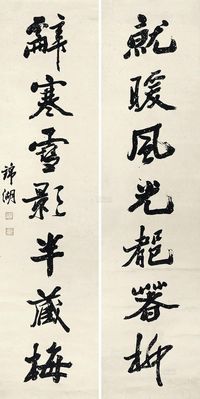 就暖風光偏著柳
辭寒雪影半藏梅
湖